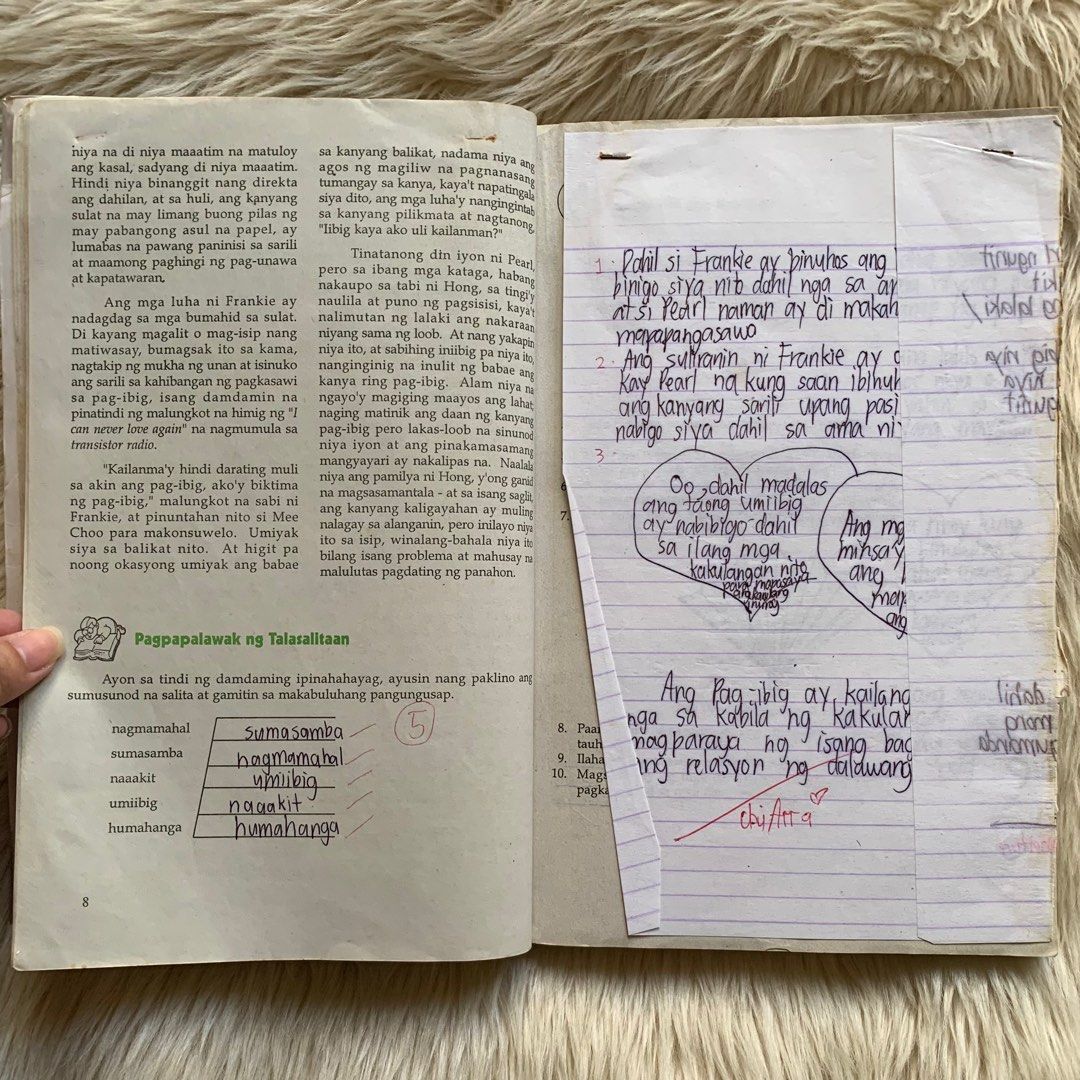 niya na di niya maaatim na matuloy
ang kasal, sadyang di niya maaatim.
Hindi niya binanggit nang direkta
ang dahilan, at sa huli, ang kanyang
sulat na may limang buong pilas ng
may pabangong asul na papel, ay
lumabas na pawang paninisi sa sarili
at maamong paghingi ng pag-unawa
at kapatawaran.
Ang mga luha ni Frankie ay
nadagdag sa mga bumahid sa sulat.
Di kayang magalit o mag-isip nang
matiwasay, bumagsak ito sa kama,
nagtakip ng mukha ng unan at isinuko
ang sarili sa kahibangan ng pagkasawi
sa pag-ibig, isang damdamin na
pinatindi ng malungkot na himig ng "I
can never love again" na nagmumula sa
transistor radio.
"Kailanma'y hindi darating muli
sa akin ang pag-ibig, ako'y biktima
ng pag-ibig," malungkot na sabi ni
Frankie, at pinuntahan nito si Mee
Choo para makonsuwelo. Umiyak
siya sa balikat nito. At higit pa
noong okasyong umiyak ang babae
sa kanyang balikat, nadama niya ang
agos ng magiliw na pagnanasang
tumangay sa kanya, kaya't napatingala
siya dito, ang mga luha'y nangingintab
sa kanyang pilikmata at nagtanong,
"Iibig kaya ako uli kailanman?"
Tinatanong din iyon ni Pearl,
pero sa ibang mga kataga, habang
nakaupo sa tabi ni Hong, sa tingi'y
naulila at puno ng pagsisisi, kaya't
nalimutan ng lalaki ang nakaraan
niyang sama ng loob. At nang yakapin
niya ito, at sabihing iniibig pa niya ito,
nanginginig na inulit ng babae ang
kanya ring pag-ibig. Alam niya na
ngayo'y magiging maayos ang lahat;
naging matinik ang daan ng kanyang
pag-ibig pero lakas-loob na sinunod
niya iyon at ang pinakamasamang
mangyayari ay nakalipas na. Naalala
niya ang pamilya ni Hong, y'ong ganid
na magsasamantala - at sa isang saglit,
ang kanyang kaligayahan ay muling
nalagay sa alanganin, pero inilayo niya
ito sa isip, winalang-bahala niya ito
bilang isang problema at mahusay na
malulutas pagdating ng panahon.
Pagpapalawak ng Talasalitaan
Ayon sa tindi ng damdaming ipinahahayag, ayusin nang paklino ang
sumusunod na salita at gamitin sa makabuluhang pangungusap.
nagmamahal
sumasamba
naaakit
umiibig
humahanga
sumasamba
nagmamahal
umiibig
naaakit
humahanga
5
8
1. Dahil si Frankie ay binuhos ang
binigo siya nito dahil nga sa
at si Pearl naman ay di
mapapangasawo
2. Ang suliranin ni Frankie ay
kay Pearl na kung saan
ang kanyang sarili upang
nabigo siya dahil sa ama
3.
Oo, dahil madalas
ang taong umiibig
ay nabibigo dahil
sa ilang mga
kakulangan nito
para mapasaya
ang kanilang
Ang
minsay
ang
ang
Ang Pag-ibig ay
sa kabila ng
magparaya ng isang
ang relasyon ng dalawang
7.
8.
9.
10.
ngunit
lalaki
niya
niya
dahil